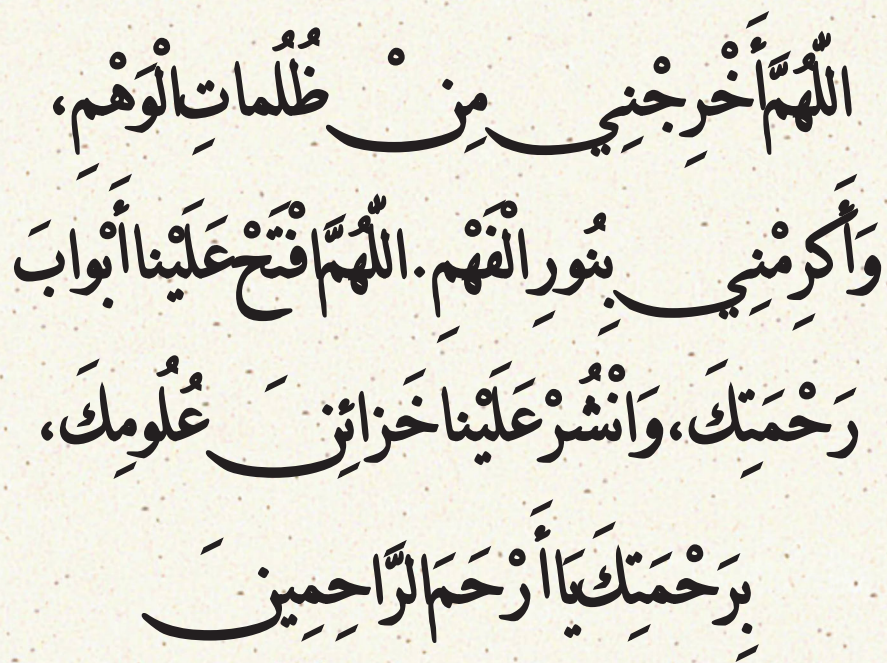 اللَّهُمَّ أَخْرِجْنِي مِنْ ظُلُماتِ الْوَهْمِ،
وَأَكْرِمْنِي بِنُورِ الْفَهْمِ. اللَّهُمَّ افْتَحْ عَلَيْنا أَبْوابَ
رَحْمَتِكَ، وَانْشُرْ عَلَيْنا خَزائِنَ عُلُومِكَ،
بِرَحْمَتِكَ يَا أَرْحَمَ الرَّاحِمِينَ